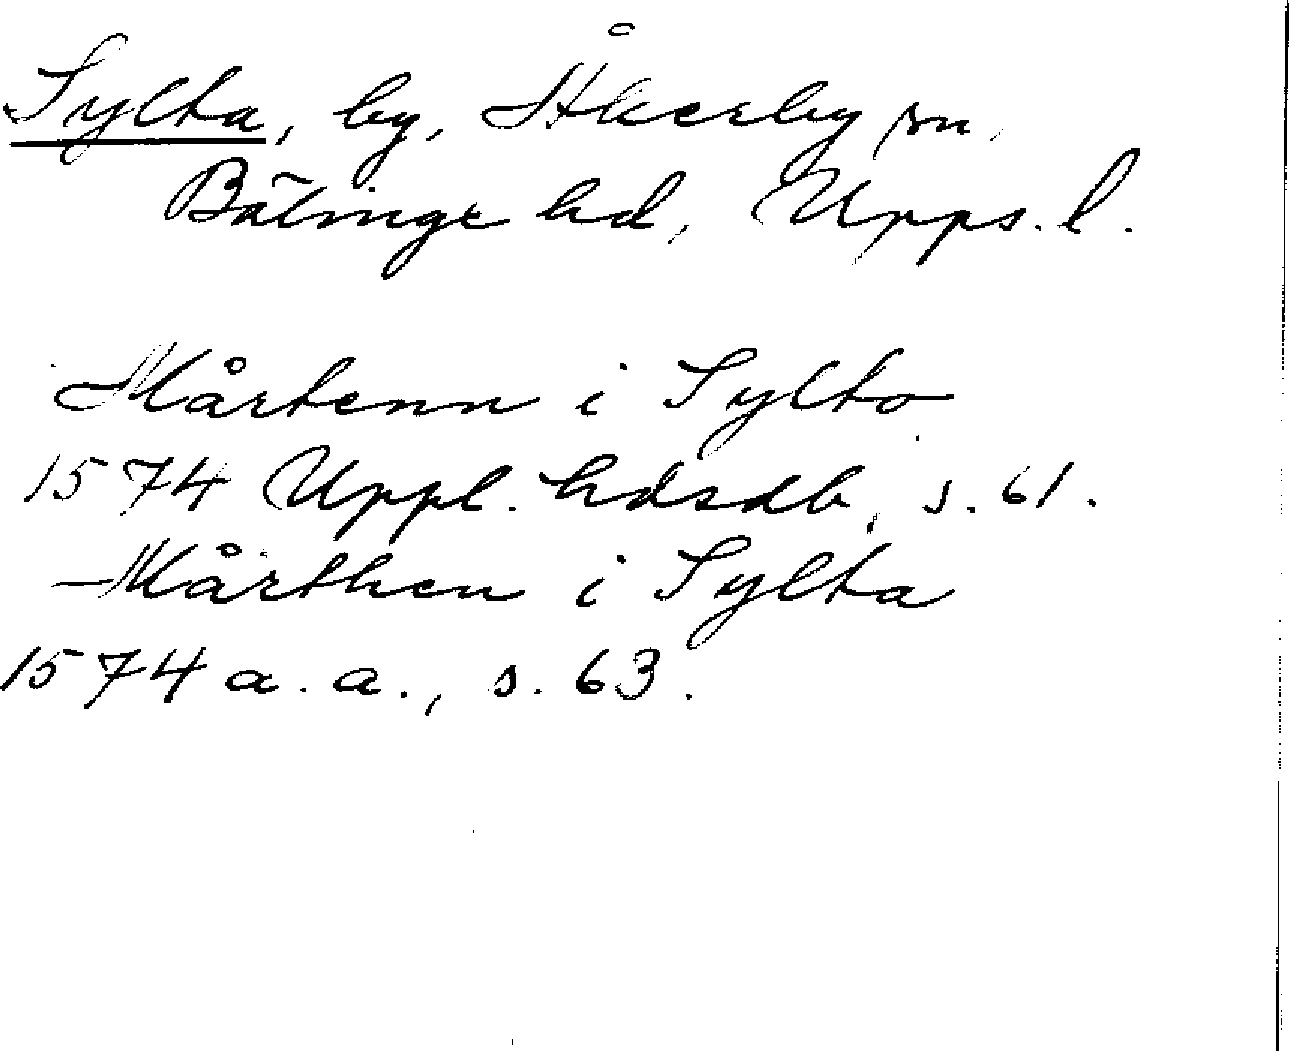 Sylta, by, Åkerby sn,
Bälinge hd, Upps. l.
Mårtenn i Sylto
1574 Uppl. hdsdb, s. 61.
Mårthen i Sylta
1574 a. a., s. 63.